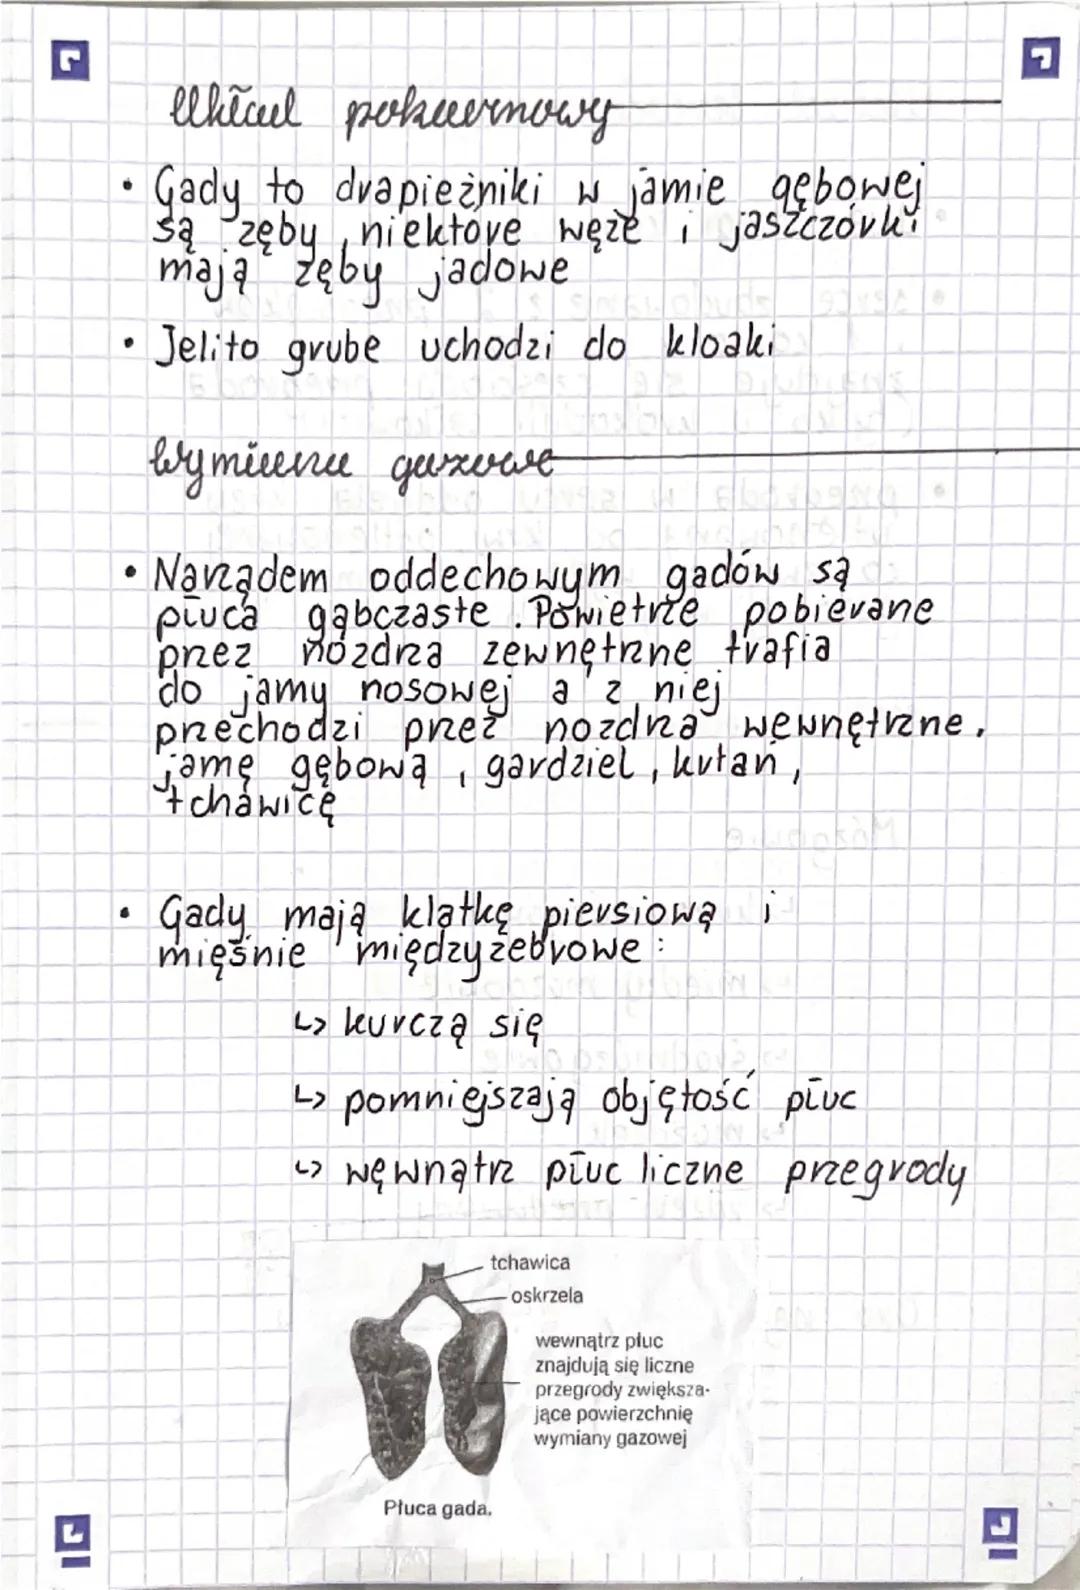 Układ pokarmowy
• Gady to drapieżniki w jamie gębowej
są zęby, niektóre węże i jaszczórki
mają zęby jadowe
• Jelito grube uchodzi do kloaki
Wymiana gazowa
• Narządem oddechowym gadów są
płuca gąbczaste. Powietrze pobierane
przez nozdrza zewnętrzne trafia
do jamy nosowej a z niej
przechodzi przez nozdrza wewnętrzne.
jamę gębową, gardziel, krtań,
tchawicę
• Gady mają klatkę piersiową i
mięśnie międzyżebrowe:
↳ kurczą się
↳ pomniejszają objętość płuc
↳ węwnątrz płuc liczne przegrody
tchawica
oskrzela
wewnątrz płuc
znajdują się liczne
przegrody zwiększa-
jące powierzchnię
wymiany gazowej
Płuca gada.